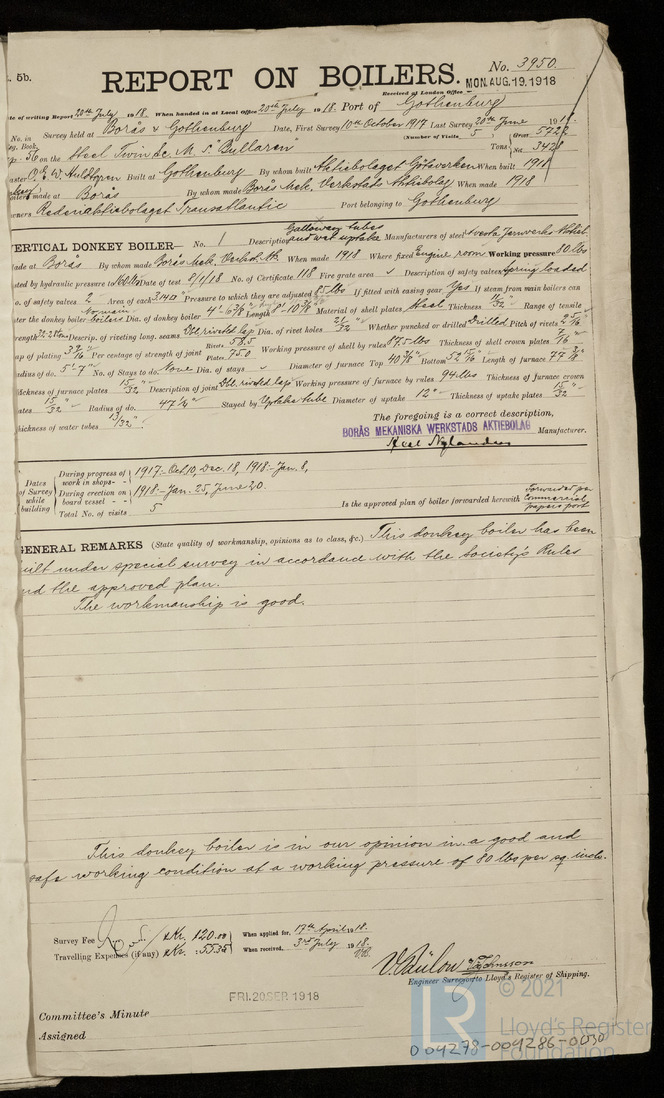 5b.
No. 3950.
REPORT ON BOILERS.
Received at London Office MON. AUG. 19. 1918
Date of writing Report 20th July 1918. When handed in at Local Office 20th July 1918 Port of Gothenburg
No. in Survey held at Borås & Gothenburg Date, First Survey 10th October 1917 Last Survey 20th June 1918
Reg. Book. (Number of Visits 5) Gross 5722
36 on the Steel Twin Sc. M. S. "Bullaren" Tons Net 3428
Built at Gothenburg By whom built Aktiebolaget Götaverken When built 1918
made at Borås By whom made Borås Mek. Verkstads Aktiebolag When made 1918
Owners Rederiaktiebolaget Transatlantic Port belonging to Gothenburg
VERTICAL DONKEY BOILER— No. 1 Description Galloway tubes and wet uptake Manufacturers of steel Avesta Jernverks Aktieb.
Made at Borås By whom made Borås Mek. Verkst. Ab. When made 1918 Where fixed Engine room Working pressure 80 lbs
tested by hydraulic pressure to 160 lbs Date of test 8/1/18 No. of Certificate 118 Fire grate area Description of safety valves Spring loaded
No. of safety valves 2 Area of each Pressure to which they are adjusted 85 lbs If fitted with easing gear Yes If steam from main boilers can
enter the donkey boiler No main boilers Dia. of donkey boiler Length Material of shell plates Steel Thickness 11/32" Range of tensile
strength Descrip. of riveting long. seams Dbl. riveted lap Dia. of rivet holes 21/32" Whether punched or drilled Drilled Pitch of rivets 2 5/16"
Lap of plating Per centage of strength of joint Rivets 58.5 Plates 75.0 Working pressure of shell by rules 87.5 lbs Thickness of shell crown plates 7/16"
Radius of do. 5'-7" No. of Stays to do. None Dia. of stays Diameter of furnace Top Bottom Length of furnace
Thickness of furnace plates 15/32" Description of joint Dbl. riveted lap Working pressure of furnace by rules 94 lbs Thickness of furnace crown
plates 15/32" Radius of do. 47 1/4" Stayed by Uptake tube Diameter of uptake 12" Thickness of uptake plates 15/32"
Thickness of water tubes 13/32"
The foregoing is a correct description,
BORÅS MEKANISKA WERKSTADS AKTIEBOLAG Manufacturer.
Axel Nylander
Dates of Survey while building
During progress of work in shops - - 1917:- Oct. 10, Dec. 18, 1918:- Jan. 8,
During erection on board vessel - - 1918:- Jan. 25, June 20.
Total No. of visits 5
Is the approved plan of boiler forwarded herewith Forwarded per commercial papers post
GENERAL REMARKS (State quality of workmanship, opinions as to class, &c.) This donkey boiler has been
built under special survey in accordance with the Society's Rules
and the approved plan.
The workmanship is good.
This donkey boiler is in our opinion in a good and
safe working condition at a working pressure of 80 lbs per sq. inch.
Survey Fee Kr. 120.00 When applied for, 17th April 1918.
Travelling Expenses (if any) Kr. 55.35 When received, 3rd July 1918.
Engineer Surveyor to Lloyd's Register of Shipping.
FRI. 20 SEP 1918
Committee's Minute
Assigned
LR © 2021
Lloyd's Register
Foundation
004278-004286-0030